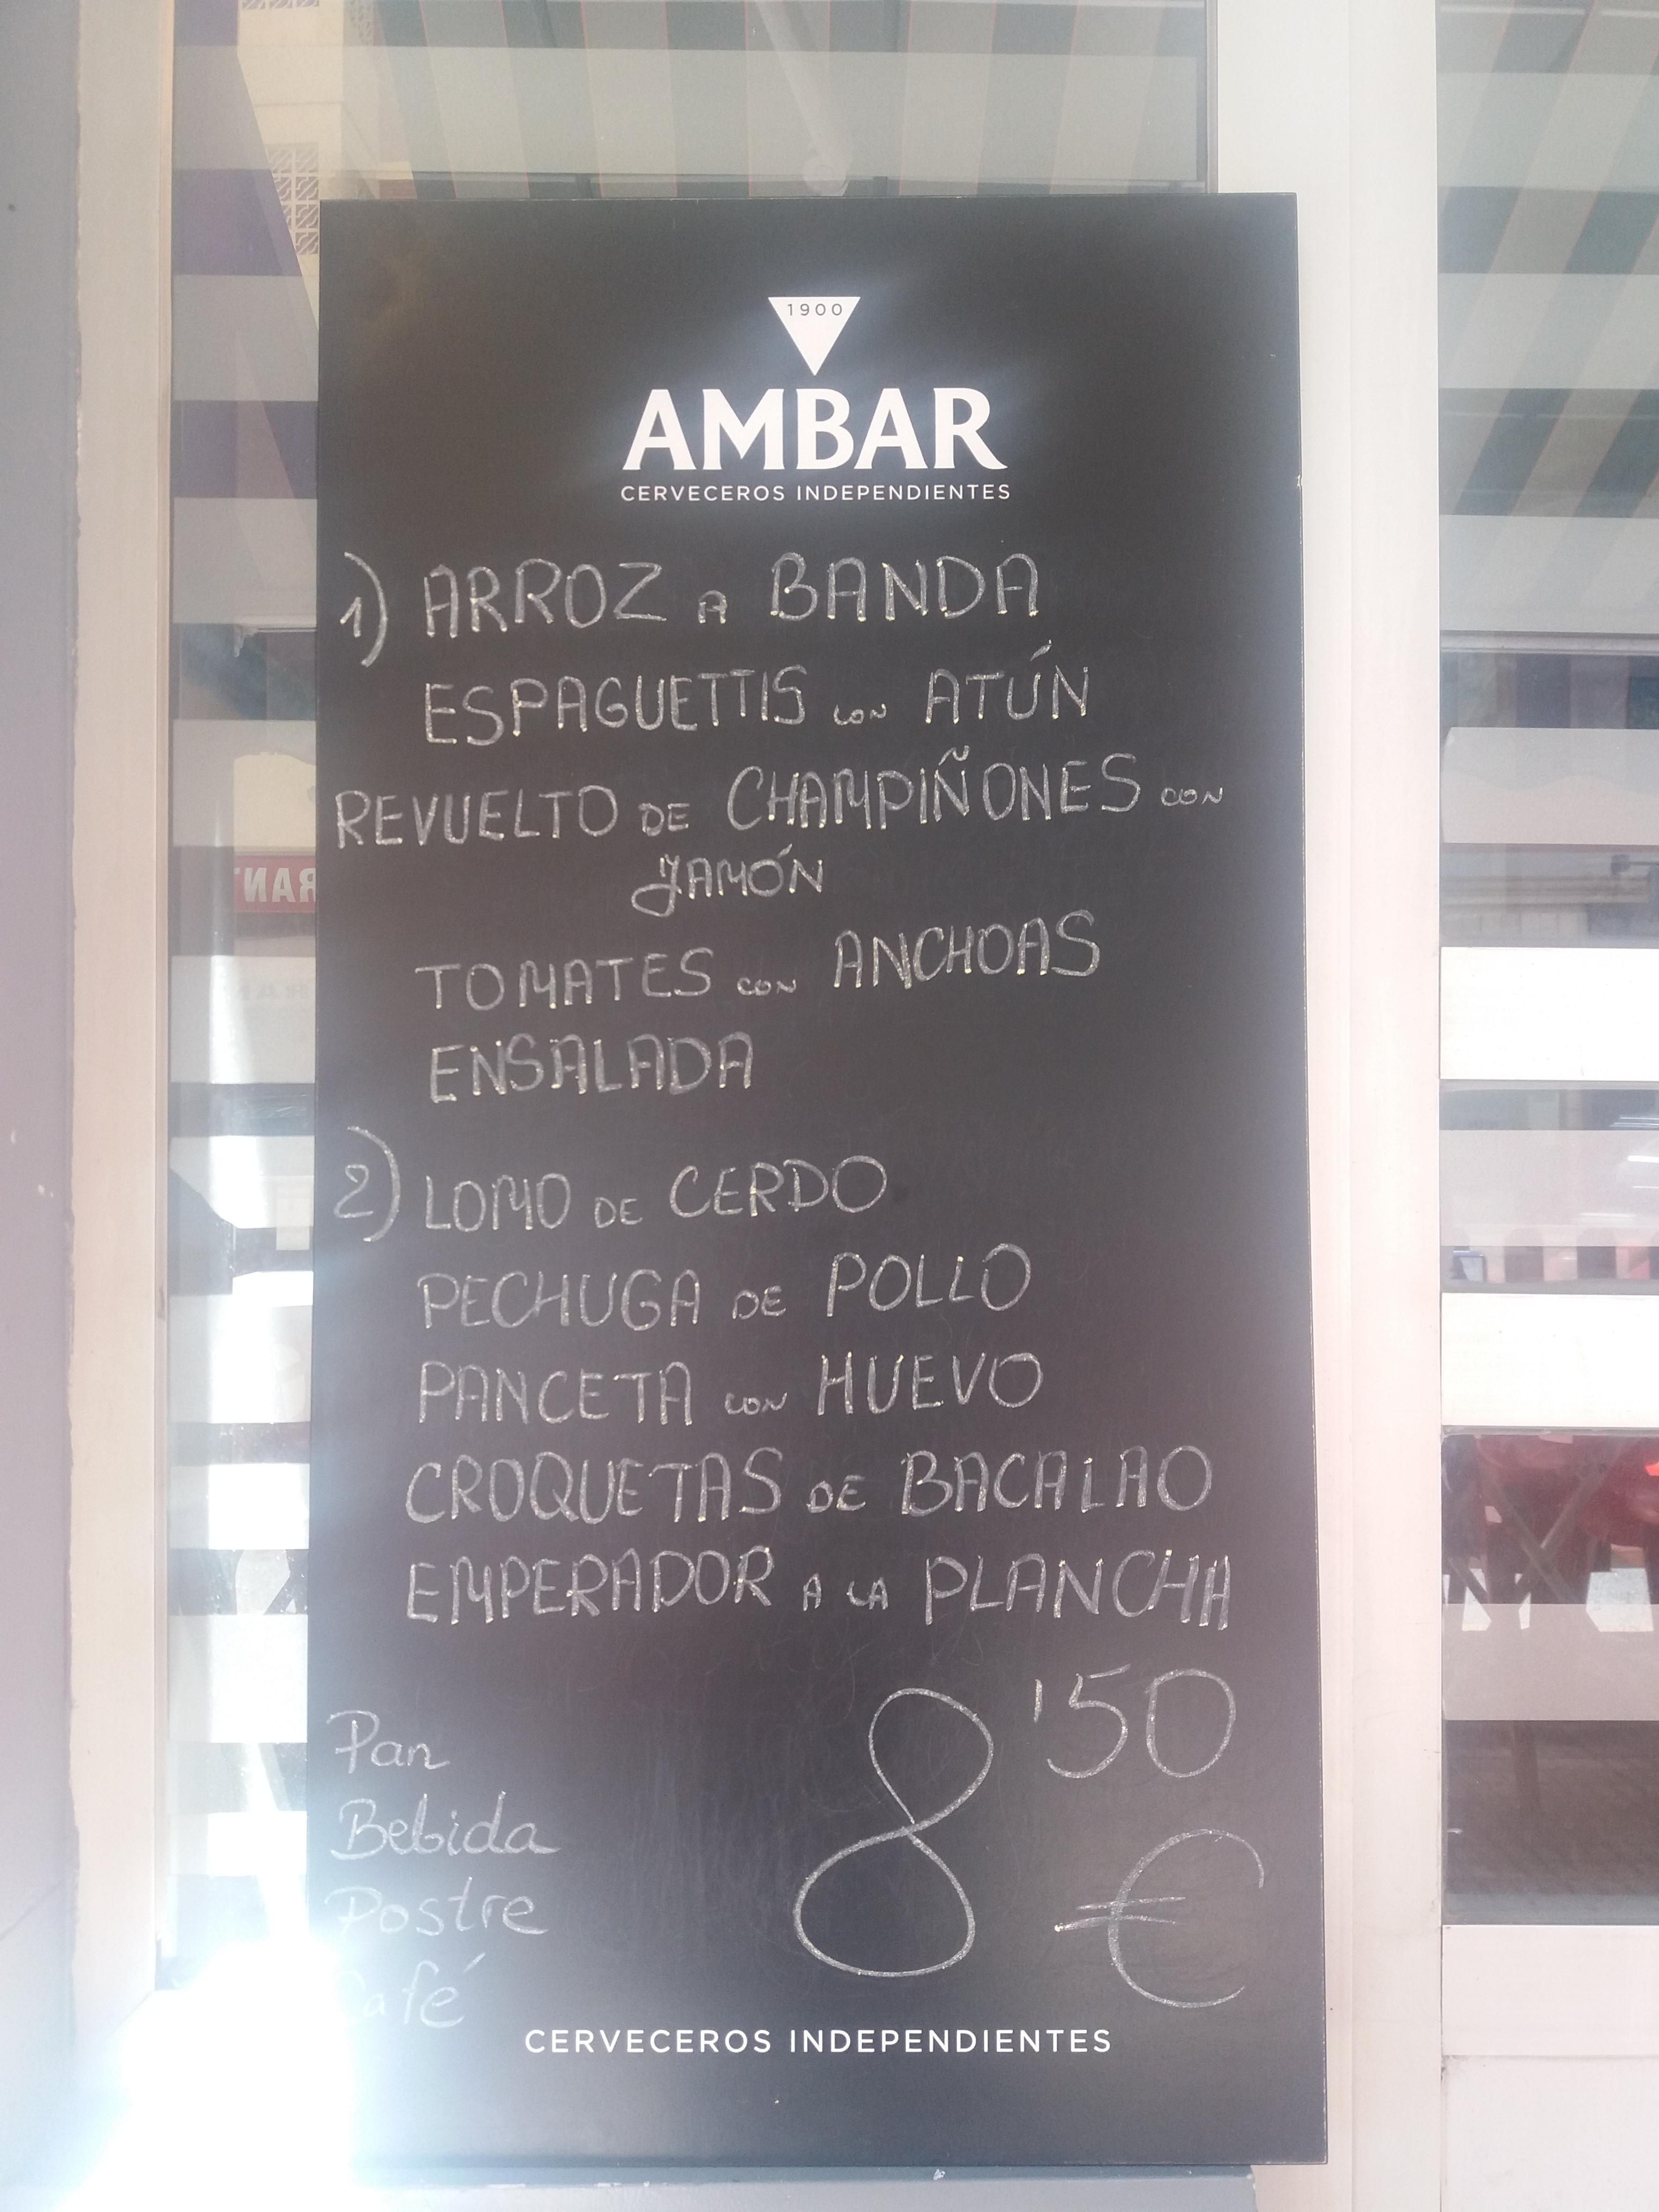 1900
AMBAR
CERVECEROS INDEPENDIENTES
1) ARROZ A BANDA
ESPAGUETTIS CON ATÚN
REVUELTO DE CHAMPIÑONES CON
JAMÓN
TOMATES CON ANCHOAS
ENSALADA
2) LOMO DE CERDO
PECHUGA DE POLLO
PANCETA CON HUEVO
CROQUETAS DE BACALAO
EMPERADOR A LA PLANCHA
8'50
€
Pan
Bebida
Postre
Café
CERVECEROS INDEPENDIENTES